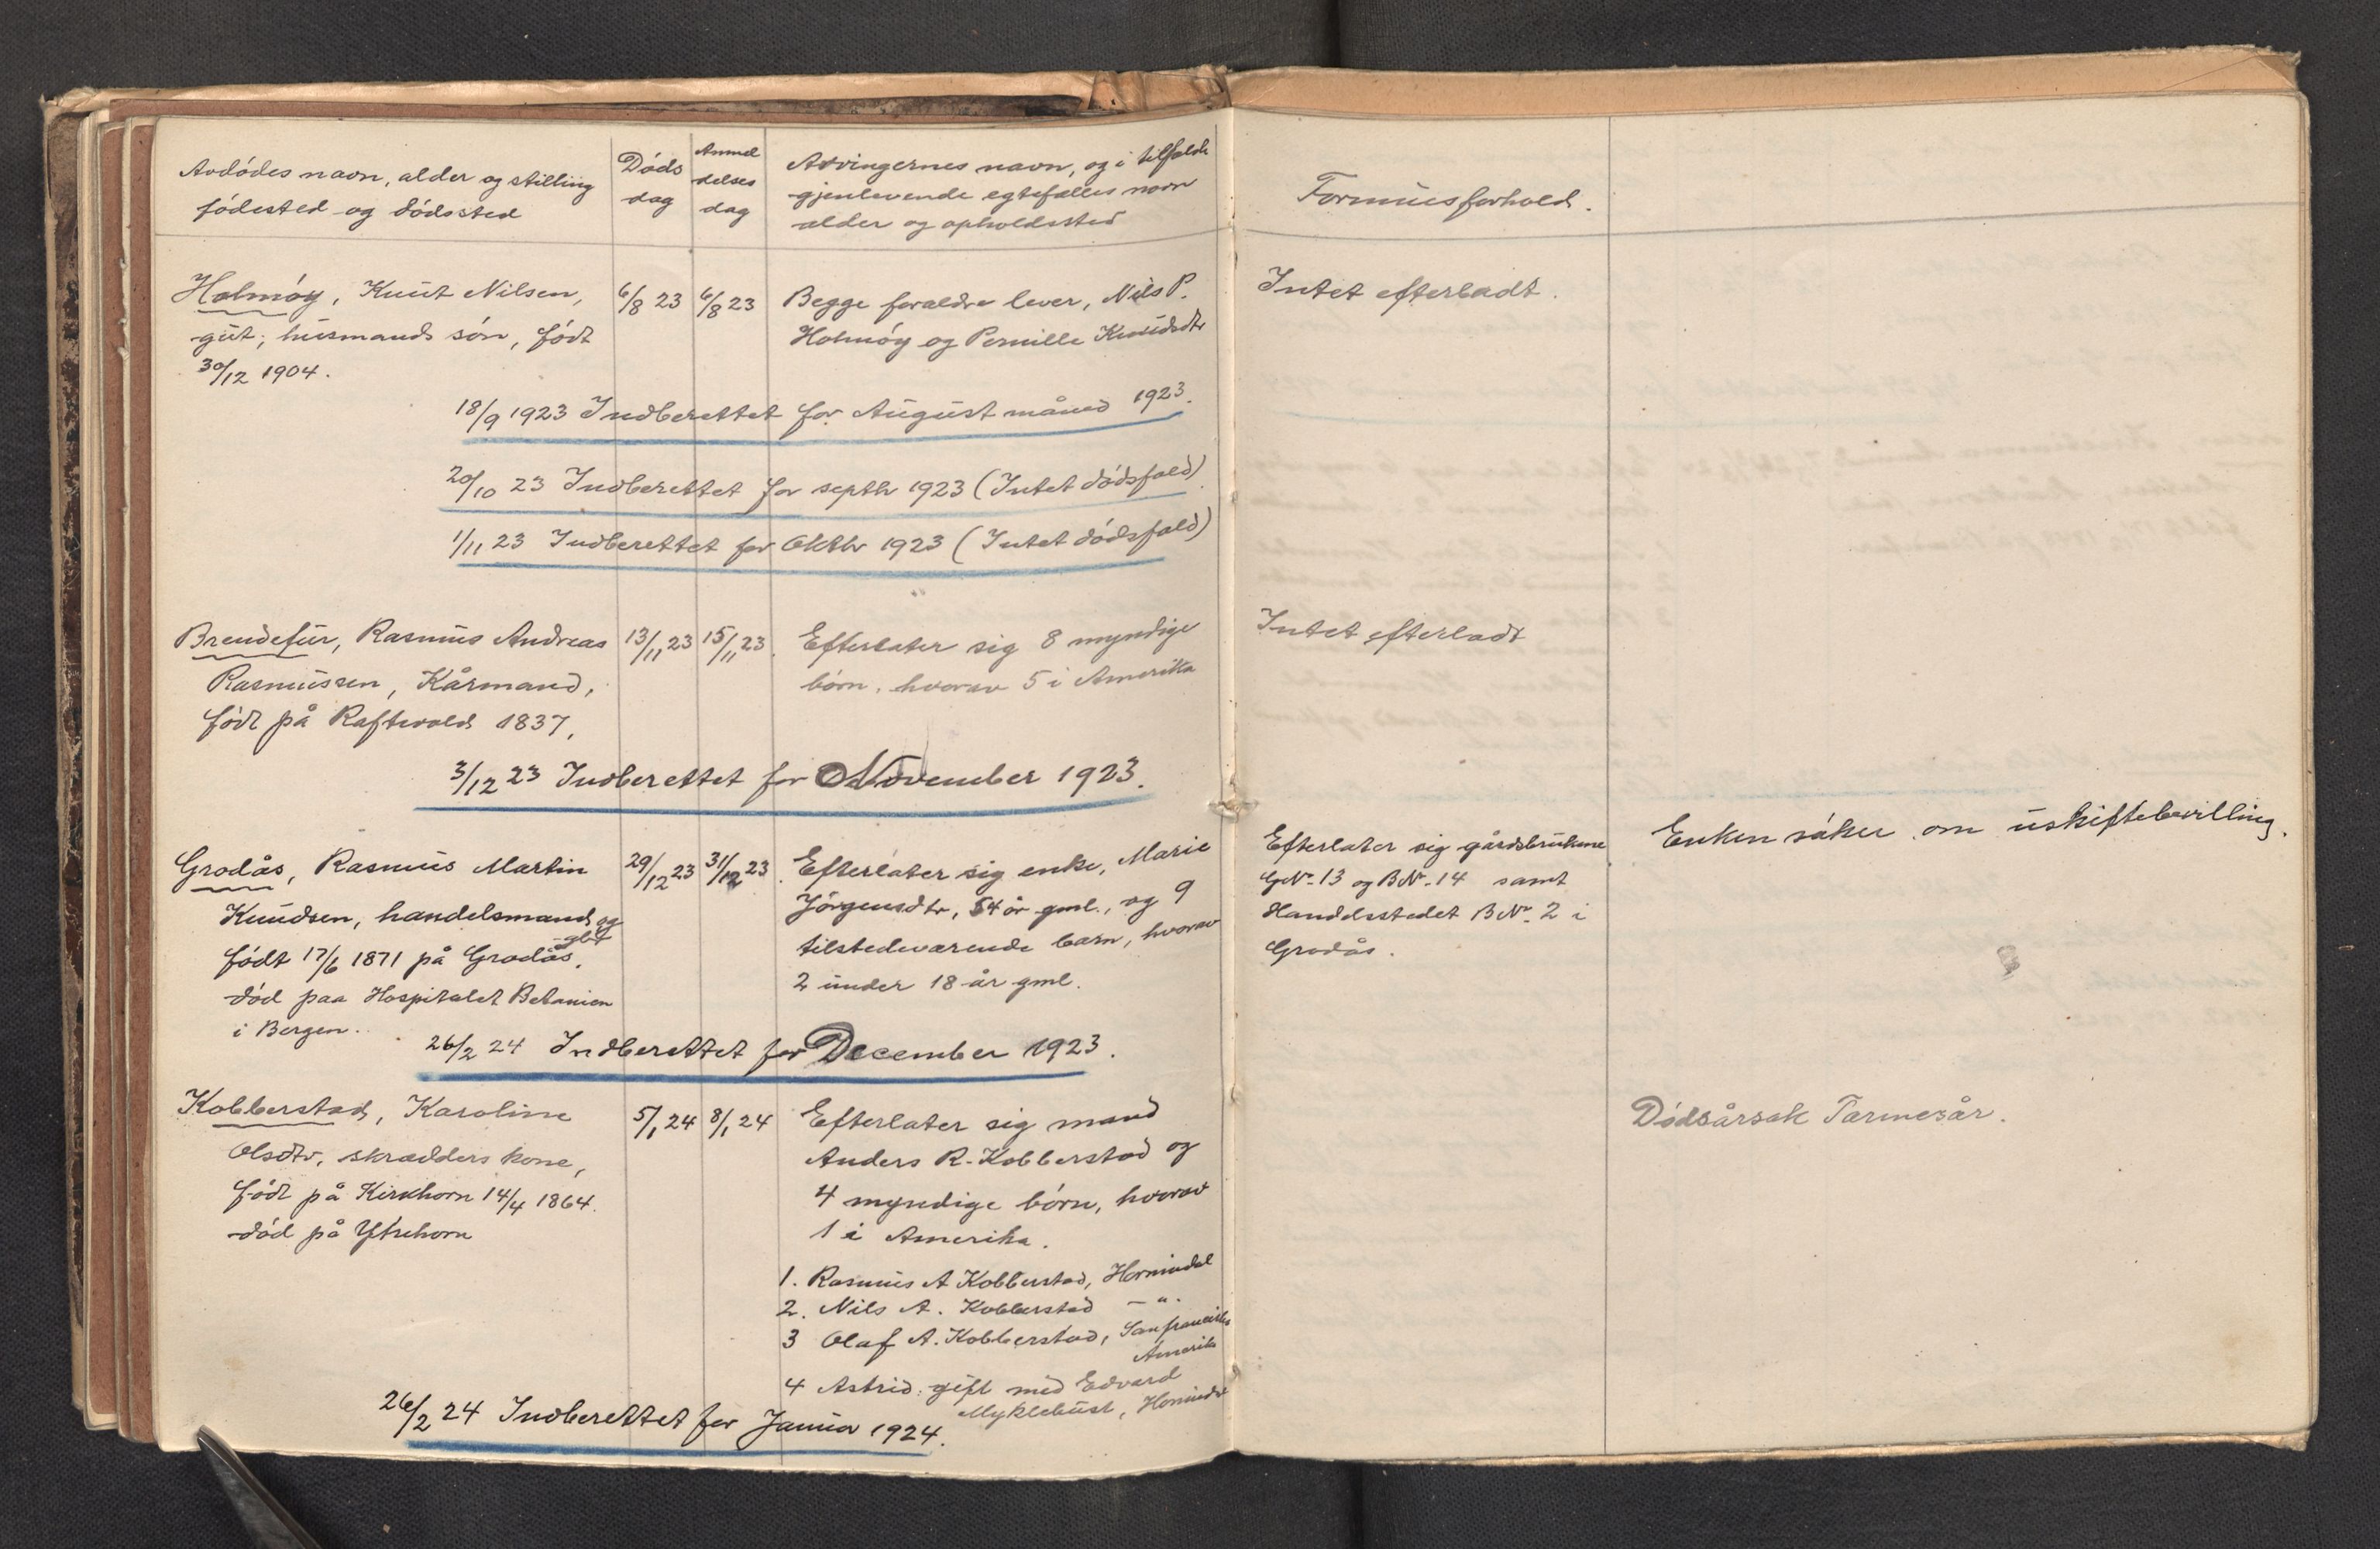 Avdødes navn, alder og stilling
fødested og dødssted
Døds
dag
Anmel
delses
dag
Arvingernes navn, og i tilfælde
gjenlevende egtefælles navn
alder og opholdssted
Formuesforhold.
Holmøy, Knut Nilsen,
gut, husmands søn, født
30/12 1904.
6/8 23
6/8 23
Begge forældre lever, Nils P.
Holmøy og Pernille Knudsdtr
Intet efterladt.
18/9 1923 Indberettet for August måned 1923.
20/10 23 Indberettet for septbr 1923 (Intet dødsfald)
1/11 23 Indberettet for Oktbr 1923 (Intet dødsfald)
Brendefur, Rasmus Andreas
Rasmussen, Kårmand,
født på Raftevold 1837,
13/11 23
15/11 23.
Efterlater sig 8 myndige
børn, hvorav 5 i Amerika
Intet efterladt
3/12 23 Indberettet for November 1923.
Grodås, Rasmus Martin
Knudsen, handelsmand og
gbr
født 17/6 1871 på Grodås,
død paa Hospitalet Betanien
i Bergen.
29/12 23
31/12 23.
Efterlater sig enke, Marie
Jørgensdtr, 54 år gml., og 9
tilstedeværende barn, hvorav
2 under 18 år gml.
Efterlater sig gårdsbrukene
GNr. 13 og BNr. 14 samt
Handelsstedet BNr. 2 i
Grodås.
Enken søker om uskiftebevilling.
26/2 24 Indberettet for December 1923.
Kobberstad, Karoline
Olsdtr, skrædders kone,
født på Kirkhorn 14/4 1864.
død på Ytrehorn
5/1 24
8/1 24
Efterlater sig mand
Anders R. Kobberstad og
4 myndige børn, hvorav
1 i Amerika.
1. Rasmus A Kobberstad, Hornindal
2. Nils A. Kobberstad — " -
3 Olaf A. Kobberstad, Sanfrancisko
Amerika
4 Astrid, gift med Edvard
Myklebust, Hornindal
Dødsårsak Tarmesår.
26/2 24 Indberettet for Januar 1924.